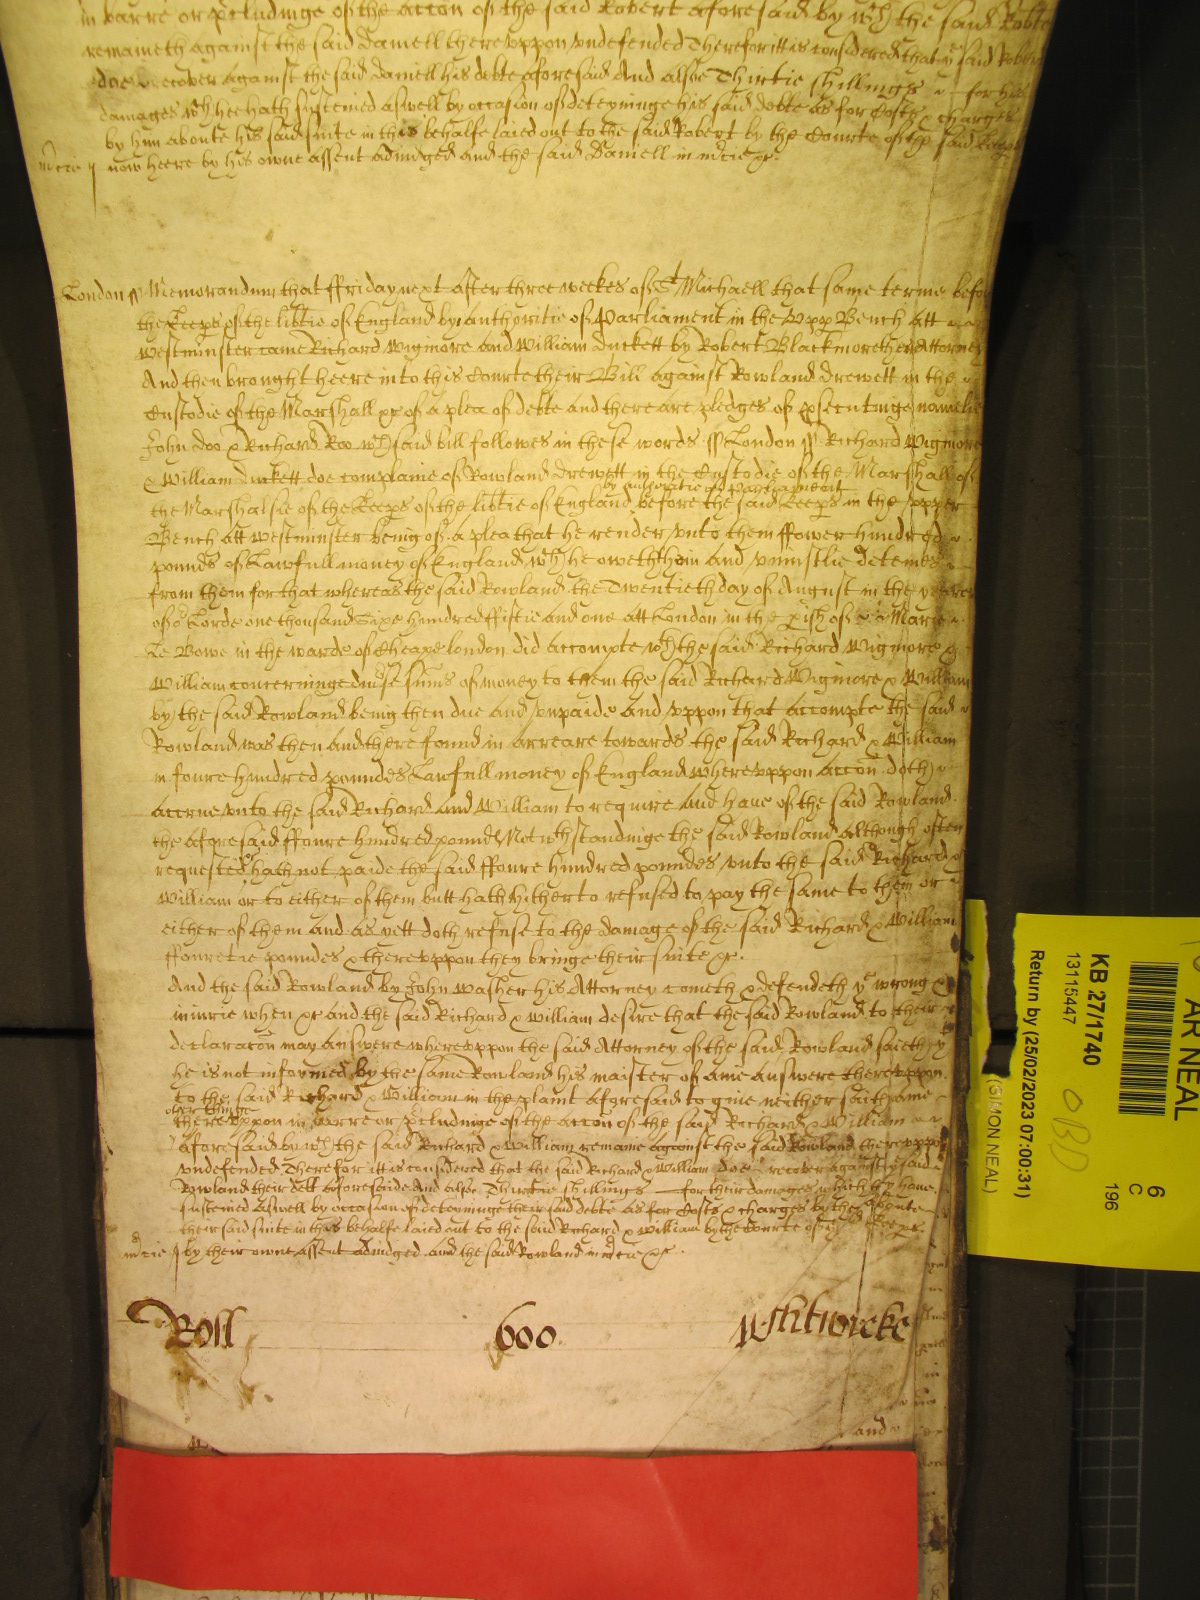 in barre or p'cludinge of the accon of the said Robert aforesaid by wch the said Robte
remaineth against the said Daniell thereuppon undefended Therefor itt is considered that ye said Robert
doe recover against the said Daniell his debte aforesaid And alsoe Thirtie shillings for his
damages wch hee hath susteined aswell by occasion of deteyninge his said debte as for Costs & charges
by him aboute his said suite in this behalfe laied out to the said Robert by the Courte of the said
now heere by his owne assent adiudged and the said Daniell in m'cie &c.
London ss Memorandum that ffriday next after three weekes of St Michaell that same terme before
the Keeps of the lib'tie of England by authoritie of Parliament in the Upp Bench att
Westminster came Richard Wigmore and William Duckett by Robert Blackmore their Attorney
And then brought heere into this Courte their Bill against Rowland Drewett in the
Custodie of the Marshall &c of a plea of debte and there are pledges of p'secutinge namelie
John Doo & Richard Roo wch said bill followes in these words ss London ss Richard Wigmore
& William Duckett doe complaine of Rowland Drewett in the Custodie of the Marshall of
by authoritie of Parliament
the Marshalsie of the Keeps of the lib'tie of England before the said Keeps in the upper
Bench att Westminster being of a plea that he render unto them ffower hundred
pounds of Lawfull money of England wch he oweth them and uniustlie deteines
from them for that whereas the said Rowland the Twentieth day of August in the yeere
of or Lorde one thousand Sixe hundred ffiftie and one att London in the p'ish of Marie
Le Bowe in the warde of Cheape London did accompte wth the said Richard Wigmore &
William concerninge div'se sums of money to them the said Richard Wigmore & William
by the said Rowland being then due and unpaide and uppon that accompte the said
Rowland was then and there found in arreare towards the said Richard & William
in foure hundred poundes Lawfull money of England whereuppon accon doth
accrue unto the said Richard and William to require and have of the said Rowland
the aforesaid ffoure hundred pound Notwthstandinge the said Rowland although often
requested hath not paide the said ffoure hundred poundes unto the said Richard &
William or to either of them butt hath hitherto refused to pay the same to them or
either of them and as yett doth refuse to the damage of the said Richard & William
ffouretie poundes & thereuppon they bringe their suite &c.
And the said Rowland by John Washer his Attorney cometh & defendeth ye wrong &
iniurie when &c and the said Richard & William desire that the said Rowland to their
declaracon may answere whereuppon the said Attorney of the said Rowland saieth
he is not informed by the same Rowland his maister of anie answere thereuppon
to the said Richard & William in the plaint aforesaid to give neither saith anie
other thinge
thereuppon in barre or p'cludinge of the accon of the said Richard & William
aforesaid by wch the said Richard & William remaine against the said Rowland thereuppon
undefended Therefor itt is considered that the said Richard & William doe recover against ye said
Rowland their debt aforesaide And alsoe Thirtie shillings for their damages which they have
susteined aswell by occasion of deteyninge their said debte as for Costs & charges by them aboute
their said suite in this behalfe laied out to the said Richard & William by the Courte of ye said Keeps
m'cie by their owne assent adiudged and the said Rowland in m'cie &c.
Roll 600 Wightwicke
and
AR NEAL
6
C
196
KB 27/1740
13115447
Return by (25/02/2023 07:00:31)
(SIMON NEAL)